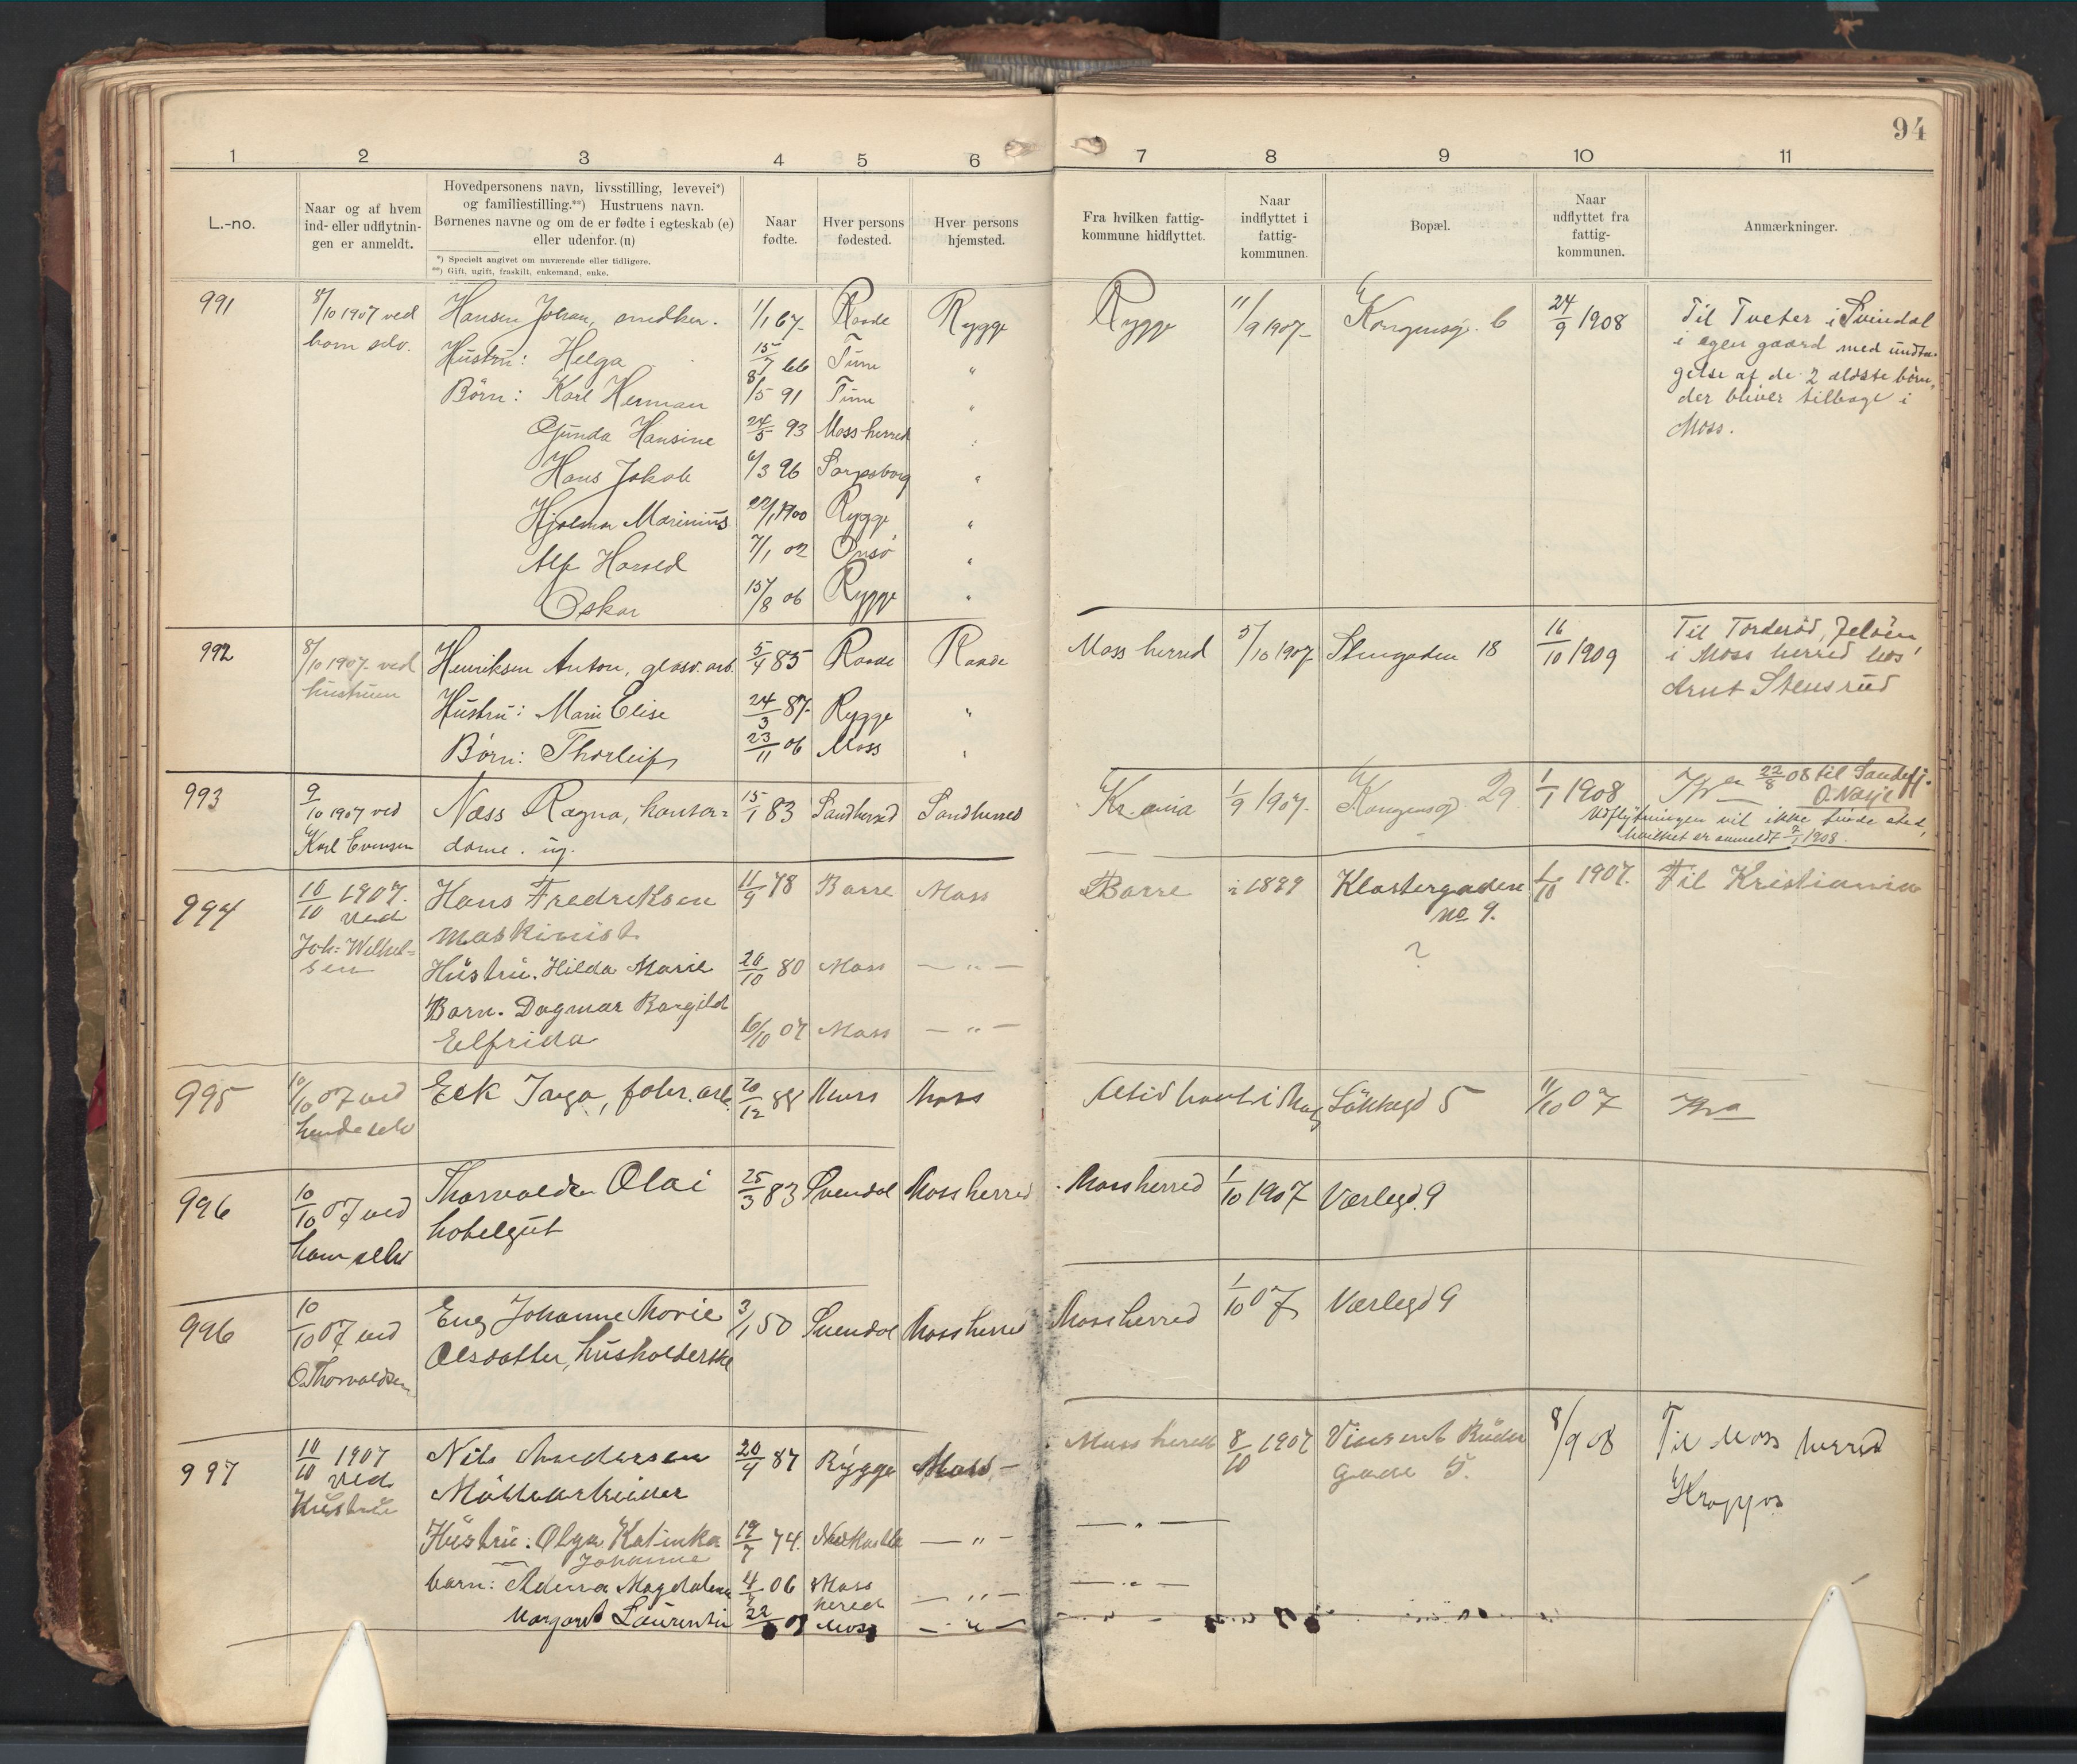 94
1 2 3 4 5 6 7 8 9 10 11
L.-no.
Naar og af hvem ind- eller udflytnin-gen er anmeldt.
Hovedpersonens navn, livsstilling, levevei*)
og familiestilling.**) Hustruens navn.
Børnenes navne og om de er fødte i egteskab (e)
eller udenfor. (u)
*) Specielt angivet om nuværende eller tidligere.
**) Gift, ugift, fraskilt, enkemand, enke.
Naar fødte.
Hver persons fødested.
Hver persons hjemsted.
Fra hvilken fattig-kommune hidflyttet.
Naar indflyttet i fattig-kommunen.
Bopæl.
Naar udflyttet fra fattig-kommunen.
Anmærkninger.
991 8/10 1907 ved Hansen Johan, snedker. 1/1 67 Raade Rygge Rygge 11/9 1907 Kongensg. 6 24/9 1908 Til Tveter i Svindal
ham selv. Hustru: Helga 15/7 66 Tune " i egen gaard med undta-
Børn: Karl Herman 8/5 91 Tune " gelse af de 2 ældste børn,
der bliver tilbage i
Gunda Hansine 24/5 93 Moss herred " Moss.
Hans Jakob 6/3 96 Sarpsborg "
Hjalmar Marinius 1900 Rygge "
Alf Harald 7/1 02 Onsø "
Oskar 15/8 06 Rygge "
992 8/10 1907 ved Henriksen Anton, glasv. arb. 5/4 85 Raade Raade Moss herred 5/10 1907 Stengaden 18 16/10 1909 Til Torderød, Jeløen,
hustruen i Moss herred hos
Arnt Stensrud
Hustru: Marie Elise 24/3 87 Rygge "
Børn: Thorleif 23/11 06 Moss "
993 9/10 1907 ved Næss Ragna, kontor= 15/1 83 Sandherred Sandherred Kr.ania 1/9 1907 Kongensgd 29 1/1 1908 22/8 08 til Sandefj.
Karl Evensen dame. ug. Udflytningen vil ikke finde sted,
hvilket er anmeldt 1908.
994 10/10 1907. ved Hans Fredreksen 11/9 78 Borre Moss Borre i 1899 Klostergaden no 9. 1/10 1907. Til Kristiania
Joh: Wilhel=sen Maskinist ?
Hüstru. Hilda Marie 20/10 80 Moss — " —
Barn. Dagmar Borgild
Elfrida 6/10 07 Moss — " —
995 10/10 07 ved Eek Inga, fabr. arb. 20/12 88 Moss Moss Altid boet i Moss Løkkegd 5 11/10 07 Kra
hende selv
996 10/10 07 ved Thorvaldsen Olai 25/3 83 Svendal Moss herred Moss herred 1/10 1907 Værlegd. 9
ham selv hotelgut
996 10/10 07 ved Eng Johanne Marie 3/1 50 Svendal Moss herred Moss herred 1/10 07 Værlegd 9
O. Thorvaldsen Olsdatter, husholderske
997 10/10 1907 ved Nils Andersen 20/4 87 Rygge Moss — Moss herred 8/10 1907 Vincent Büdde 8/9 08 Til Moss herred
Hustru Møllearbeider gade 5.
Hustru: Olga Katinka 19/7 74. — " — — " —
Johanne
barn: Magdalena 06 Moss herred — " — — " —
Margaret Laurentin 22 Moss — " —